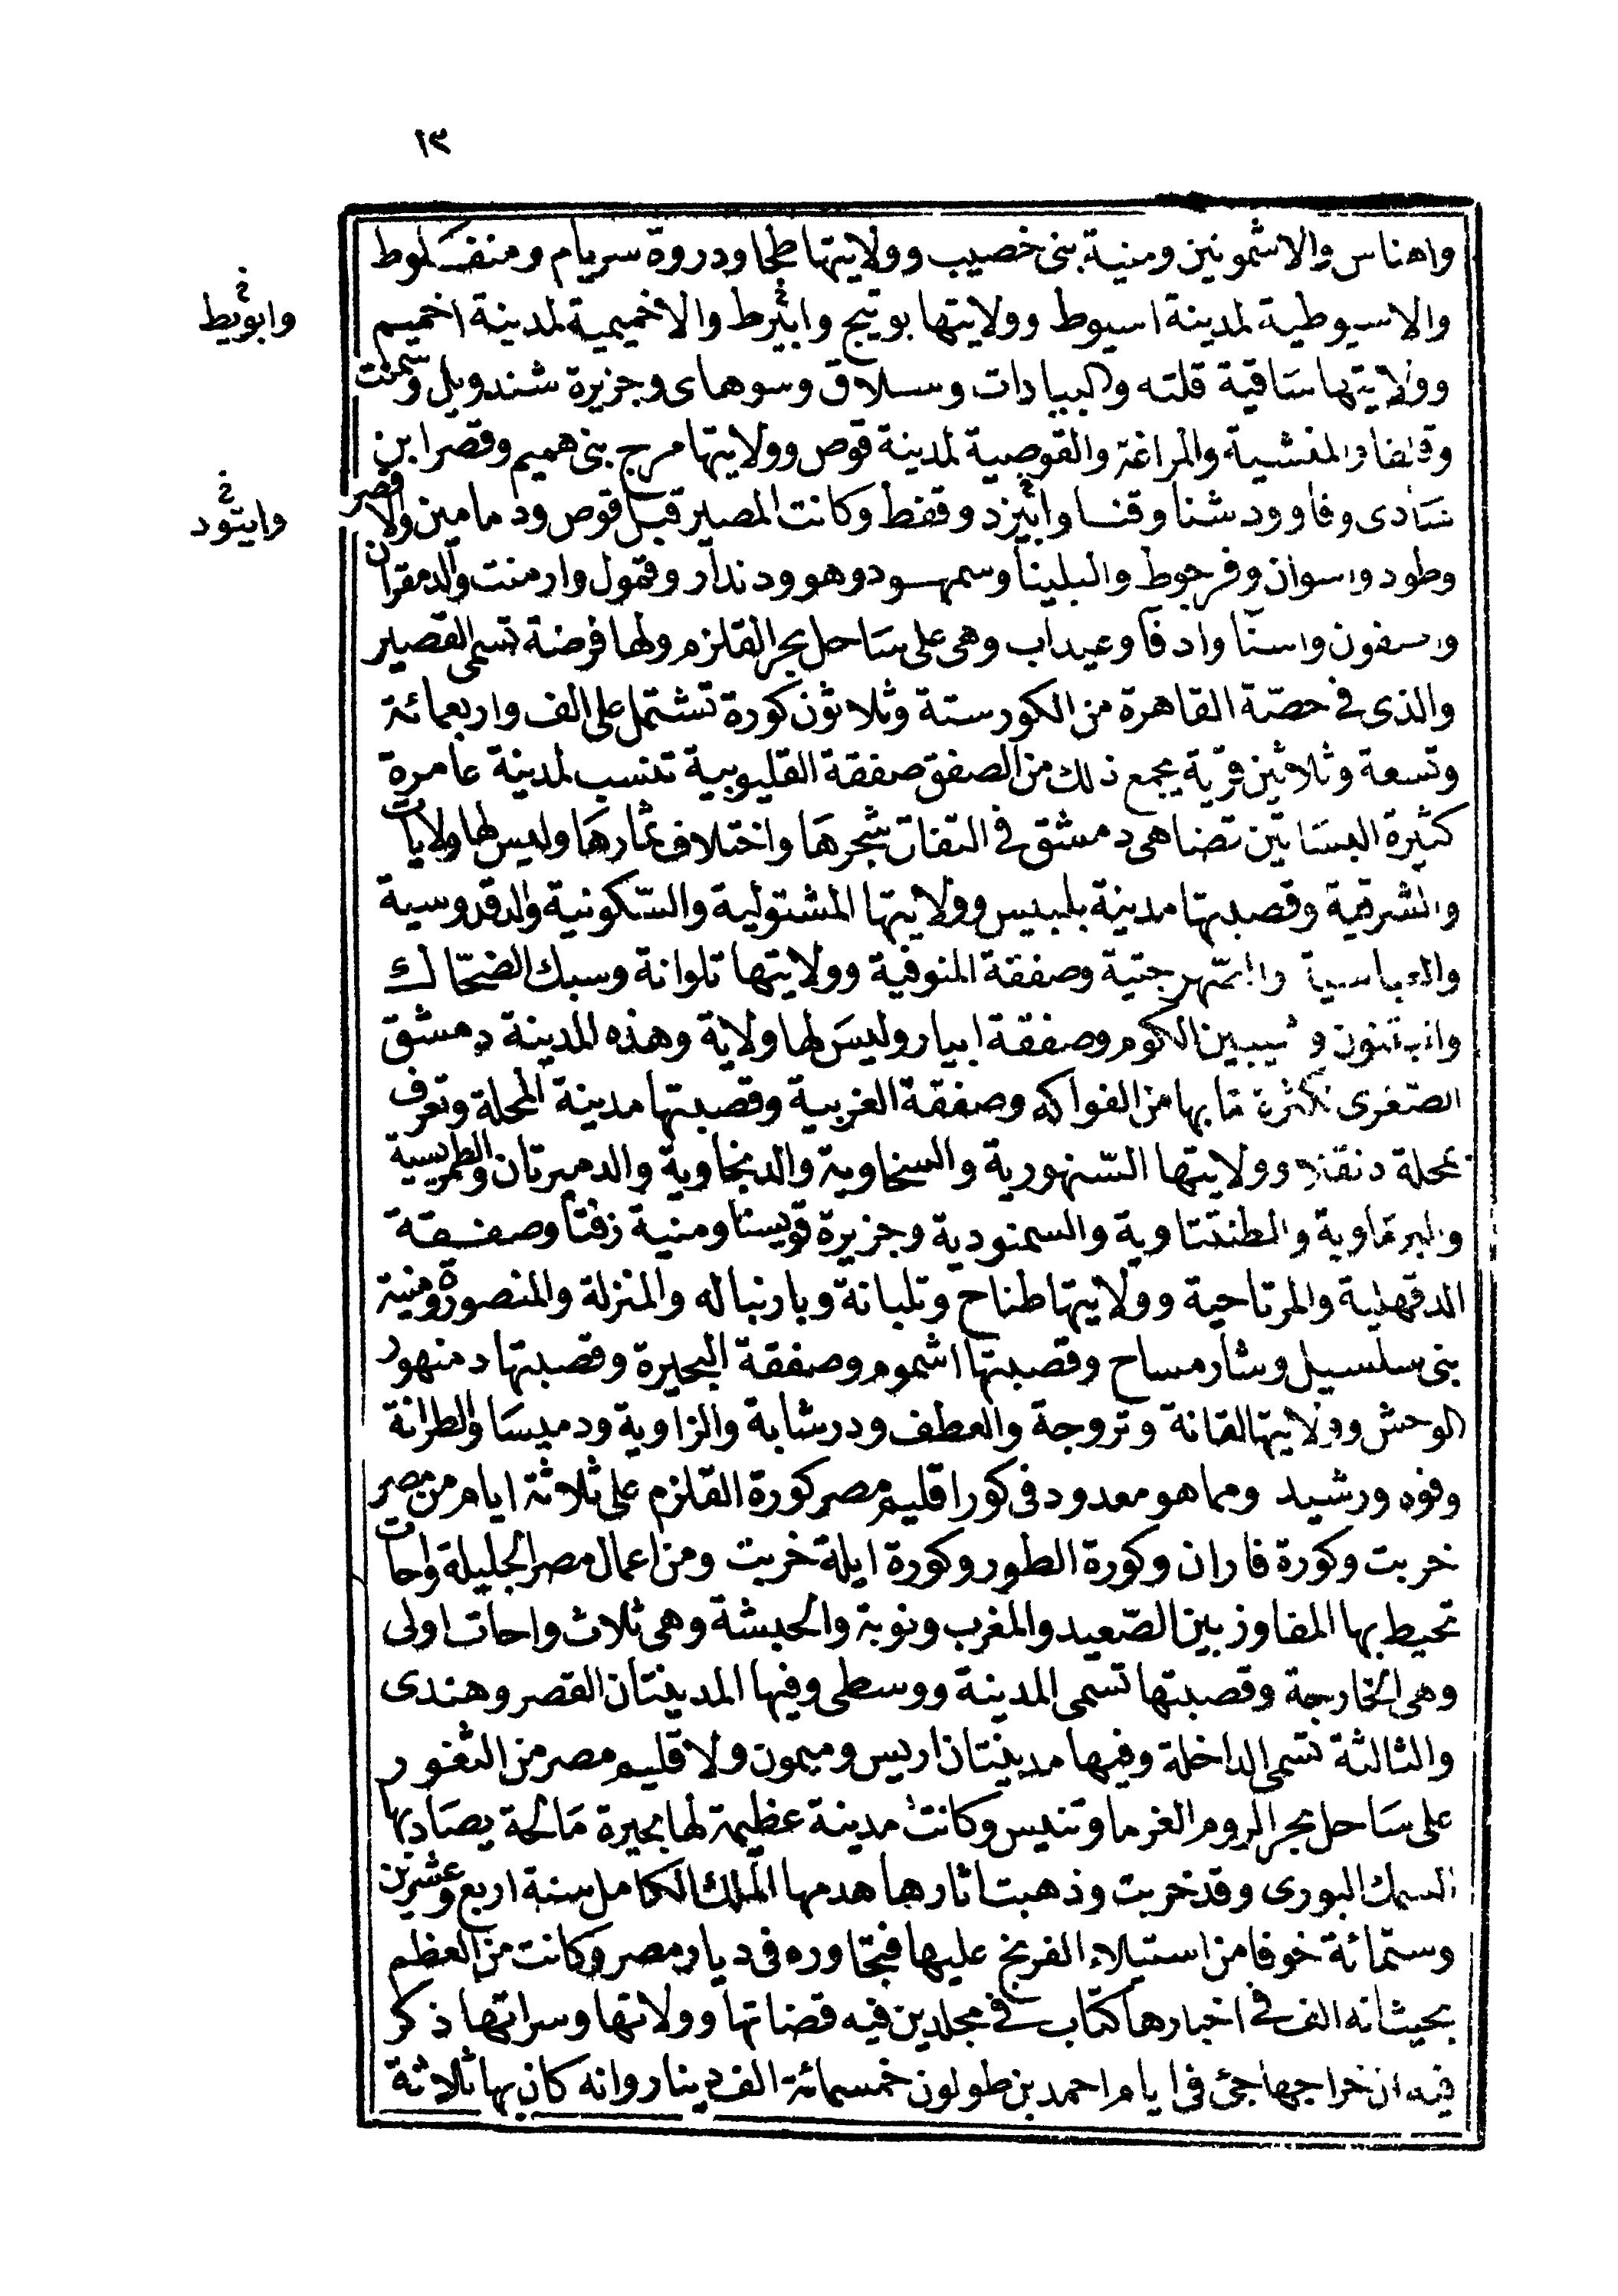 ١٣
واهناس والاشمونين ومنية بنى خصيب وولايتها طحا ودروة سريام ومنفلوط
والاسيوطية لمدينة اسيوط وولايتها بوتيج وابئرط والاخميمية لمدينة اخميم
وابويط
وولايتها ساقية قلته والبيادات وسلاق وسوهاى وجزيرة شندويل وسمنت
وقلفا والمنشية والمراغة والقوصية لمدينة قوص وولايتها مرج بنى هميم وقصر ابن
شادى وفاو ودشنا وقنا وابئزد وقفط وكانت المصير قبل قوص ودمامين والاقصر
وابتود
وطود واسوان وفرجوط والبلينا وسمهود وهو ودندار وقمول وارمنت والدمقران
واسفون واسنا وادفا وعيداب وهى على ساحل بحر القلزم ولها فرضة تسمى القصير
والذى فى حصّة القاهرة من الكور ستة وثلاثون كورة تشتمل على الف واربعمائة
وتسعة وثلاثين قرية يجمع ذلك من الصفق صفقة القليوبية تنسب لمدينة عامرة
كثيرة البساتين تضاهى دمشق فى التفات شجرها واختلاف ثمارها وليس لها ولايات
والشرقية وقصبتها مدينة بلبيس وولايتها المشتولية والسّكونية والدقدوسية
والعباسية والصّهرجتية وصفقة المنوفية وولايتها تلوانة وسبك الضحّاك
وانبتنون وشيبين الكوم وصفقة ابيار وليس لها ولاية وهذه المدينة دمشق
الصّغرى لكثرة ما بها من الفواكه وصفقة الغربية وقصبتها مدينة المحلة وتعرف
بمحلة دنقلا وولايتها السّنهورية والسخاوية والدنجاوية والدميرتان والطمريسية
والبرماوية والطنتتاوية والسمنودية وجزيرة قويسنا ومنية زفتا وصفقة
الدقهلية والمرتاحية وولايتها طناح وتلبانة وبارنباله والمنزلة والمنصورة ومنية
بنى سلسيل وشارمساح وقصبتها اشموم وصفقة البحيرة وقصبتها دمنهور
الوحش وولايتها لقانة وتروجة والعطف ودرشابة والزاوية ودميسا والطرانة
وفوه ورشيد ومما هو معدود فى كور اقليم مصر كورة القلزم على ثلاثة ايام من مصر
خربت وكورة فاران وكورة الطور وكورة ايلة خربت ومن اعمال مصر الجليلة واحات
تحيط بها المفاوز بين الصّعيد والمغرب ونوبة والحبشة وهى ثلاث واحات اولى
وهى الخارجة وقصبتها تسمى المدينة ووسطى وفيها المدينتان القصر وهندى
والثالثة تسمى الداخلة وفيها مدينتان اريس وميمون ولاقليم مصر من الثغور
على ساحل بحر الروم الفرما وتنيس وكانت مدينة عظيمة لها بحيرة مالحة يصاد بها
السمك البورى وقد خربت وذهبت اثارها هدمها الملك الكامل سنة اربع وعشرين
وستمائة خوفا من استيلاء الفرنج عليها فتجاوره فى ديار مصر وكانت من العظم
بحيث انه الف فى اخبارها كتاب فى مجلدين فيه قضاتها وولاتها وسراتها ذكر
فيه ان خراجها جئ فى ايام احمد بن طولون خمسمائة الف دينار وانه كان بها ثلاثة